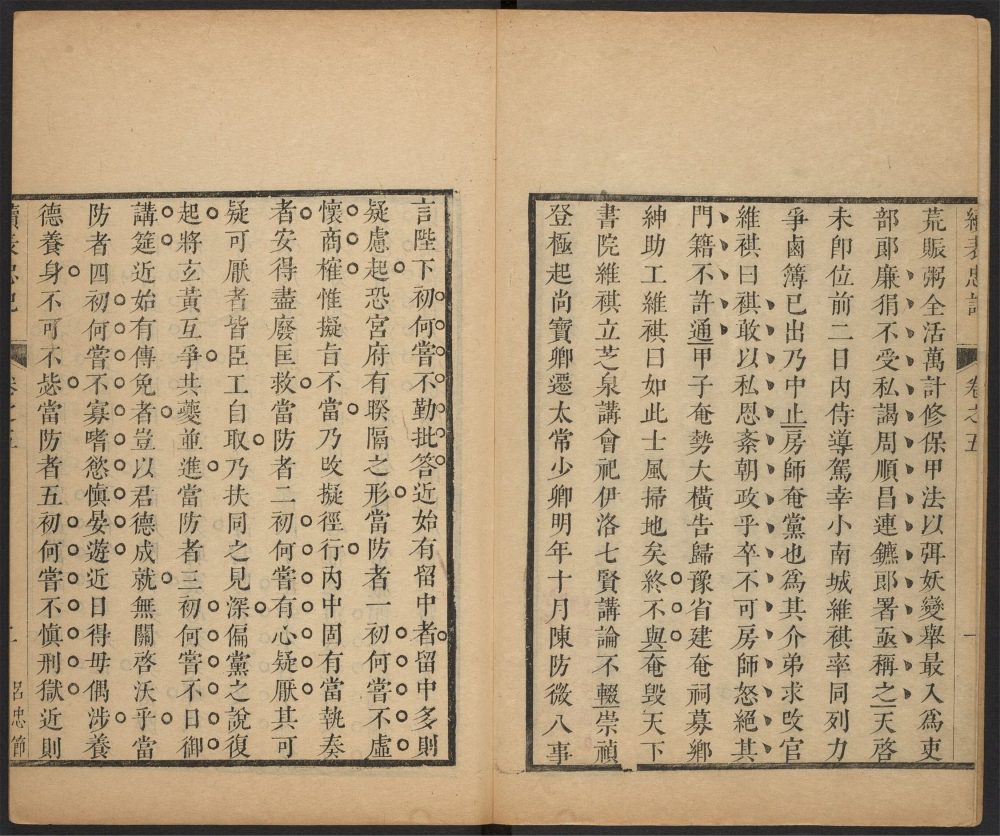 續表忠記 卷之五 一
荒賑粥全活萬計修保甲法以弭妖變舉最入爲吏
部郎廉狷不受私謁周順昌連鑣郎署亟稱之天啓
未卽位前二日內侍導駕幸小南城維祺率同列力
爭鹵簿已出乃中止房師奄黨也爲其介弟求攺官
維祺曰祺敢以私恩紊朝政乎卒不可房師怒絕其
門籍不許通甲子奄勢大橫告歸豫省建奄祠募鄉
紳助工維祺曰如此士風掃地矣終不與奄毀天下
書院維祺立芝泉講會祀伊洛七賢講論不輟崇禎
登極起尚寶卿遷太常少卿明年十月陳防微八事
言陛下初何嘗不勤批答近始有留中者留中多則
疑慮起恐宮府有睽隔之形當防者一初何嘗不虛
懷商榷惟擬旨不當乃攺擬徑行內中固有當執奏
者安得盡廢匡救當防者二初何嘗有心疑厭其可
疑可厭者皆臣工自取乃扶同之見深偏黨之說復
起將玄黃互爭共夔並進當防者三初何嘗不日御
講筵近始有傳免者豈以君德成就無關啓沃乎當
防者四初何嘗不寡嗜慾慎晏遊近日得毋偶涉養
德養身不可不毖當防者五初何嘗不慎刑獄近則
續表忠記 卷之五 一 呂忠節